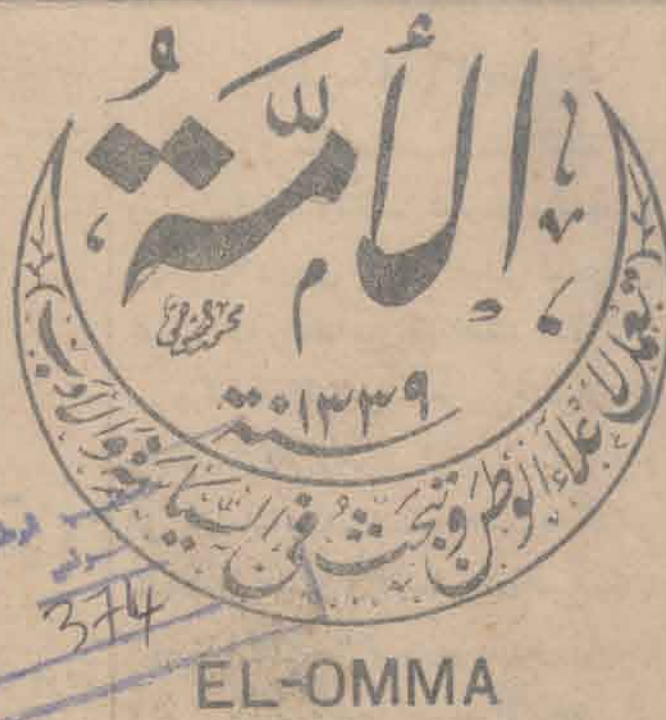 الأُمَّةُ
سنة ١٣٣٩
تعمل لإعلاء الوطن وتبحث في السياسة والأدب
374
EL-OMMA